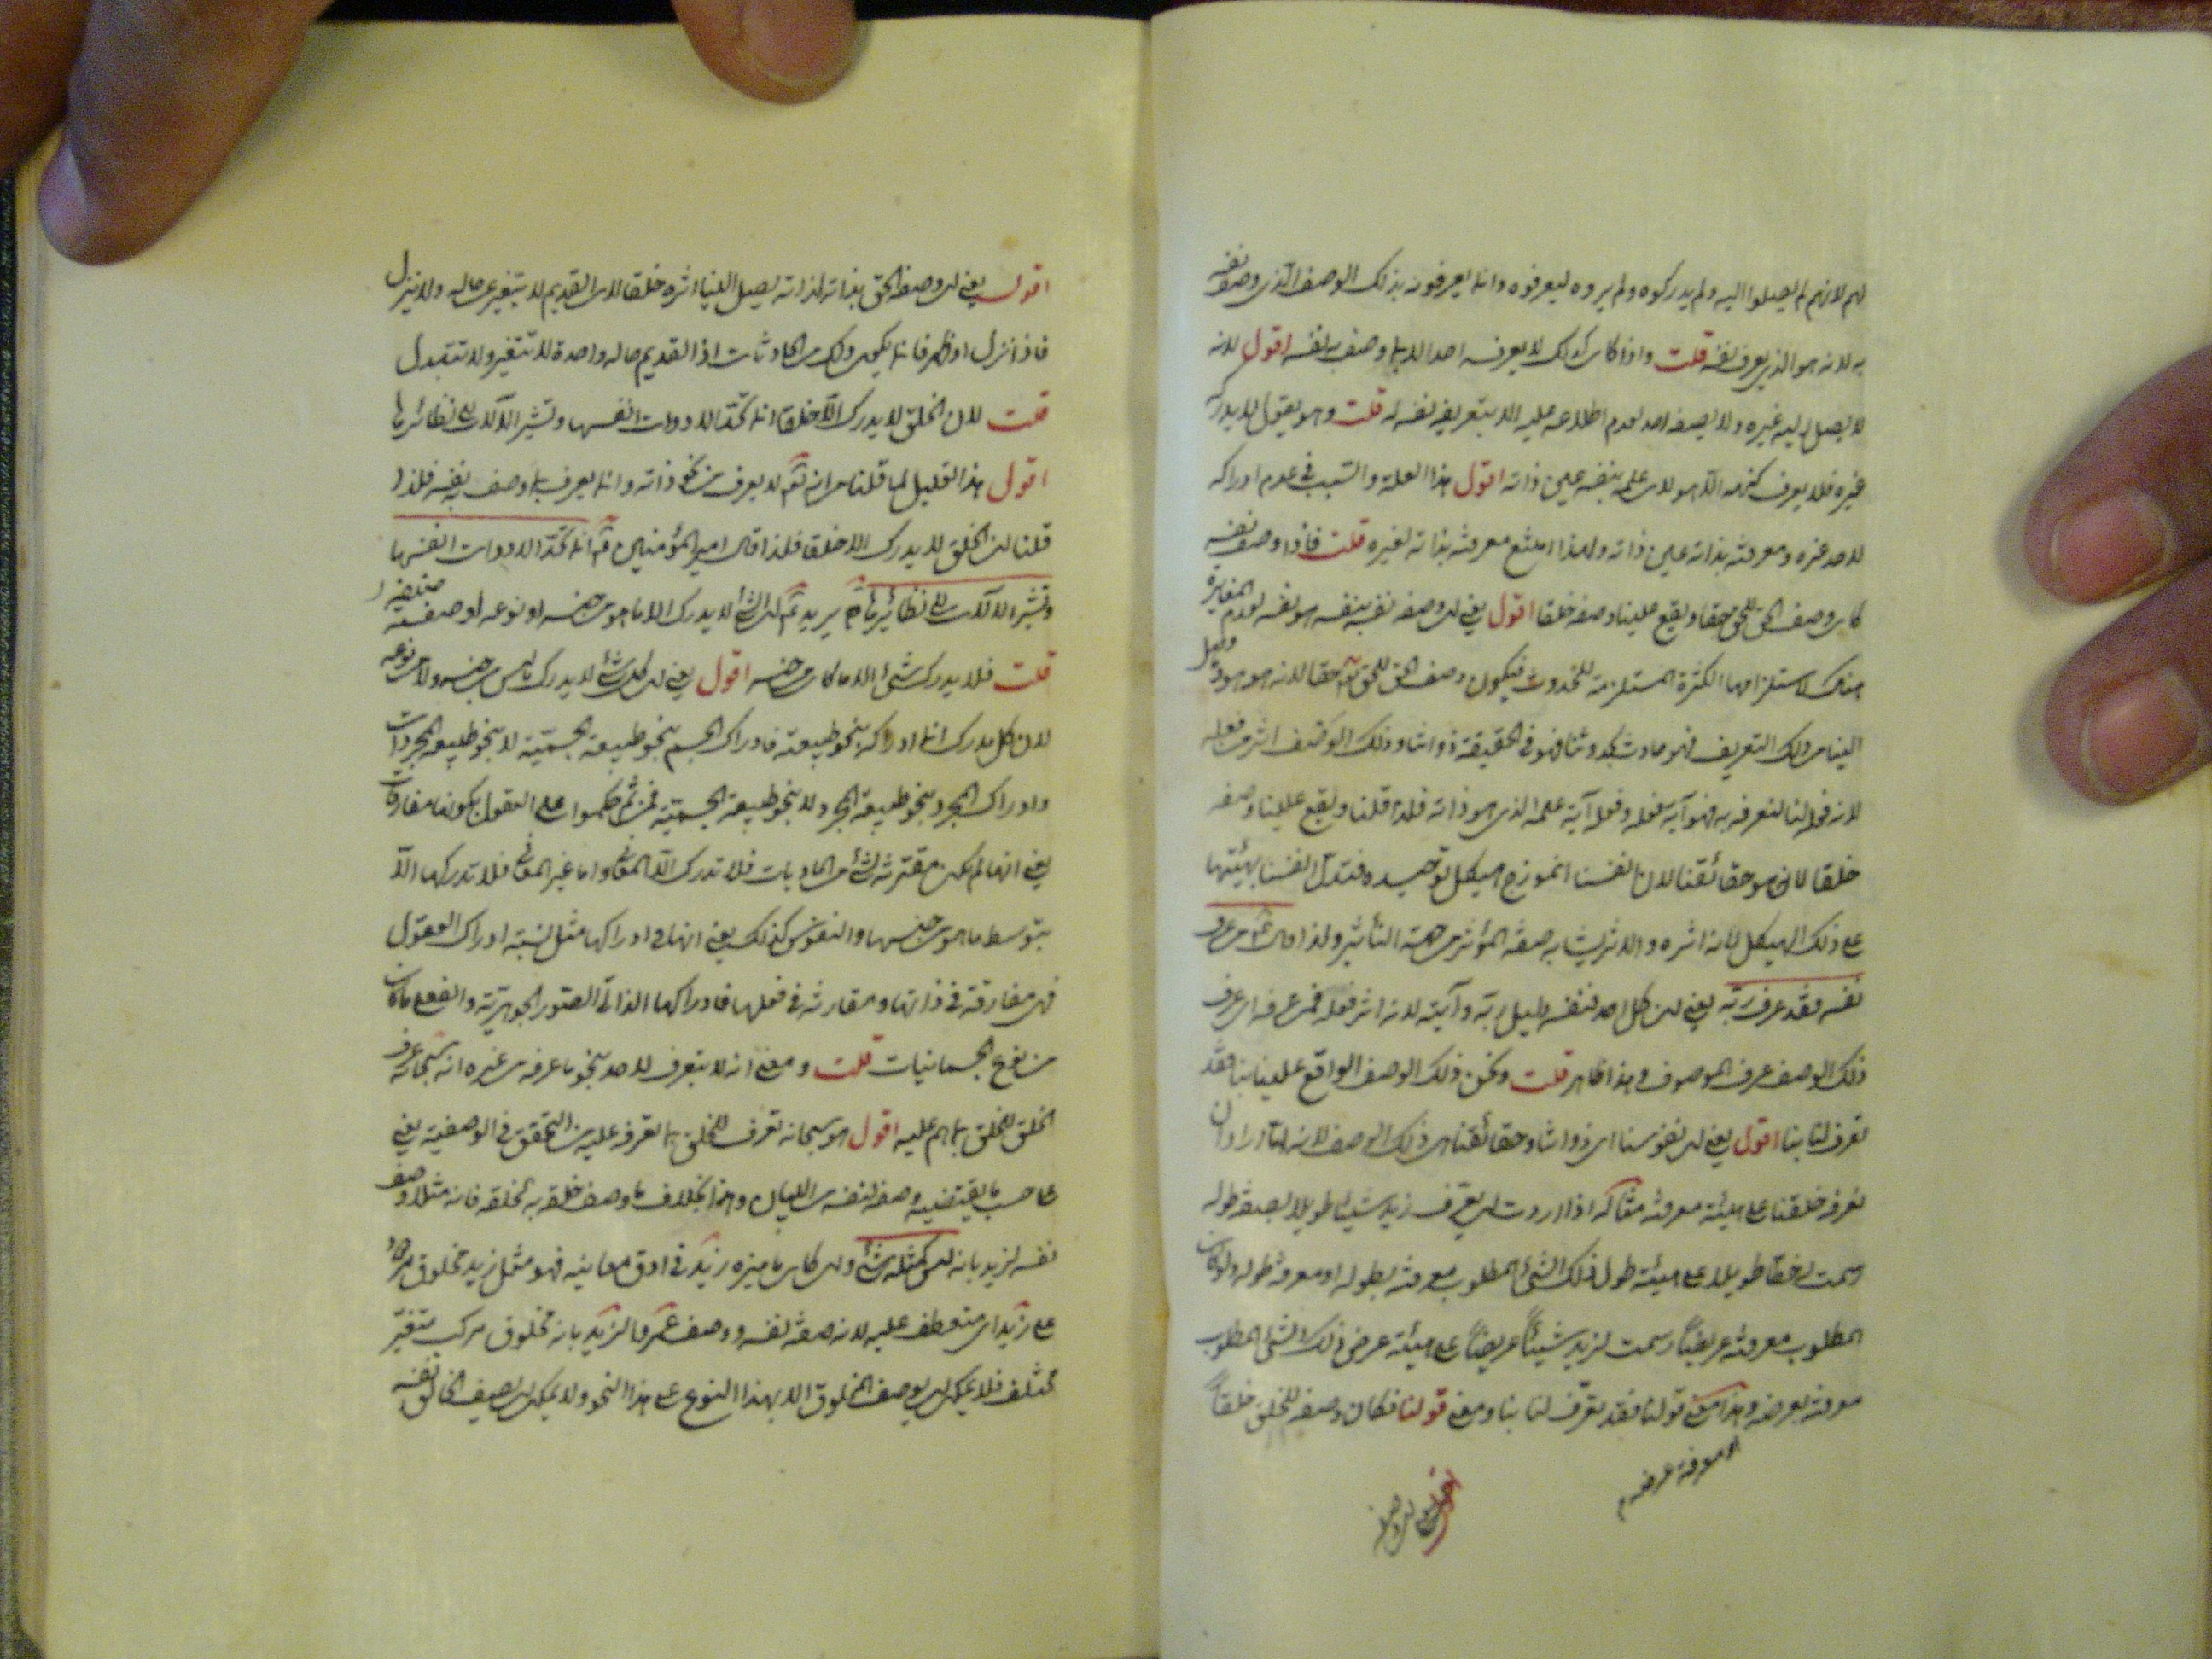 لهم لانهم لم يصلوا اليه ولم يدركوه ولم يروه ليعرفوه وانما يعرفونه بذلك الوصف الذى وصف نفسه
به لانه هو الذي يعرف نفسه قلت واذا كان كذلك لا يعرفه احد الا بما وصف به نفسه اقول لانه
لا يصل اليه غيره ولا يصفه احد لعدم اطلاعه عليه الا بتعريفه نفسه له قلت وهو يعقل لا يدركه
غيره فلا يعرف كنهه الا هو لان علمه بنفسه عين ذاته اقول هذا العلة والسبب فى عدم ادراكه
لاحد غيره ومعرفته بذاته عين ذاته ولهذا امتنع معرفته بذاته لغيره قلت فاذا وصف نفسه
كان وصف الحق للحق حقا ويقع علينا وصفه خلقا اقول يعنى ان وصفه نفسه بنفسه هو نفسه لعدم المغايرة
هناك لاستلزامها الكثرة المستلزمة للحدوث فيكون وصف الحق للحق حقا لانه هو هو
الينا من ذلك التعريف فهو حادث بحدوثنا فهو فى الحقيقة ذواتنا وذلك الوصف اثر من فعله
لانه فعله لنا لنعرفه به فهو آية فعله وفعله آية علمه الذى هو ذاته فلذا قلنا ويقع علينا وصفه
خلقا لانه هو حقائقنا لان انفسنا انموزج هيكل توحيده فتدل انفسنا بهيئتها
على ذلك الهيكل لانه اثره والاثر يشابه صفة المؤثر من جهة التأثير ولذا قال من عرف
نفسه فقد عرف ربه يعنى ان كل احد لنفسه دليل ربه وآيته لانه اثر فعله فمن عرفه اى عرف
ذلك الوصف عرف الموصوف وهذا ظاهر قلت ونحن ذلك الوصف الواقع علينا بنا فقد
تعرف لنا بنا اقول يعنى ان نفوسنا اى ذواتنا وحقائقنا هى ذلك الوصف لانه لما اراد ان
نعرفه خلقنا على هيئة معرفته مثاله اذا اردت ان يعرف زيد شيئا طويلا بصفة طوله
رسمت له خطا طويلا على هيئة طول ذلك الشئ المطلوب معرفته بطوله او معرفة طوله ولو كان
المطلوب معرفته عريضاً رسمت لزيد شيئاً عريضاً على هيئة عرض ذلك الشئ المطلوب
معرفته بعرضه وهذا معنى قولنا فقد تعرّف لنا بنا ومعنى قولنا فكان وصفه للخلق خلقاً
او معرفة عرضه
اقول يعنى ان وصف
اقول يعنى ان وصف الحق بذاته لذاته يصل الينا اثره خلقا لان القديم لا يتغير عن حاله ولا ينزل
فاذا نزل او ظهر فانما يكون ذلك من الحادثات اذ القديم حاله واحدة لا تتغير ولا تتبدل
قلت لان الخلق لا يدرك الا خلقا انما تحد الادوات انفسها وتشير الآلات الى نظائرها
اقول هذا التعليل لما قلنا من انه تع لا يعرف من نحو ذاته وانما يعرف بما وصف به نفسه فلذا
قلنا ان الخلق لا يدرك الا خلقا فلذا قال امير المؤمنين انما تحد الادوات انفسها
وتشير الالآت الى نظائرها يريد ان الشئ لا يدرك الا ما هو من جنسه او نوعه او صفته
قلت فلا يدرك شئ الا ما كان من جنسه اقول يعنى ان كل شئ لا يدرك ما ليس من جنسه ولا من نوعه
لان كل مدرك انما ادراكه بنحو طبيعته فادراك الجسم بنحو طبيعة الجسمية لا بنحو طبيعة المجردات
وادراك المجرد بنحو طبيعة المجرد لا بنحو طبيعة الجسمية فمن ثم حكموا على العقول بكونها مفارقات
يعنى انها لم تكن مقترنة بشئ من الماديات فلا تدرك الا المعانى واما غير المعانى فلا تدركها الا
بتوسط ما هو من جنسها والنفوس كذلك يعنى انها فى ادراكها مثل نسبة ادراك العقول
فهى مفارقة فى ذاتها ومقارنة فى فعلها فادراكها الذاتى الصور الجوهرية والفعلى ما كان
من نوع الجسمانيات قلت ومعنى انه لا يتعرف لاحد بنحو ما عرفه من غيره انه سبحانه عرف
الخلق للخلق بما هم عليه اقول هو سبحانه تعرف للخلق بما تعرف عليه من التحقق فى الوصفية يعنى
على حسب ما يقتضيه وصفه لنفسه من البيان وهذا بخلاف ما وصف خلقه به لخلقه فانه مثلا وصف
نفسه لزيد بانه ليس كمثله شئ وان كان ما ميزه زيد فى ادق معانيه فهو مثل زيد مخلوق مردود
على زيد اى منعطف عليه لانه صفة نفسه ووصف عمروا لزيد بانه مخلوق مركب متغير
مختلف فلا يمكن ان يوصف المخلوق الا بهذا النوع على هذا النحو ولا يمكن ان يصف الخالق نفسه